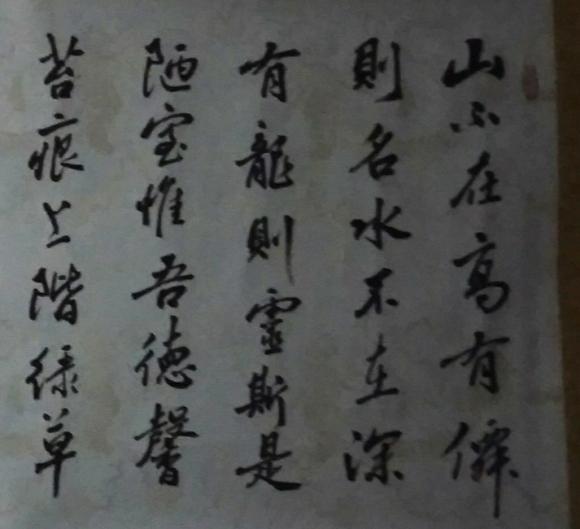 山不在高有僊
則名水不在深
有龍則靈斯是
陋室惟吾德馨
苔痕上階綠草